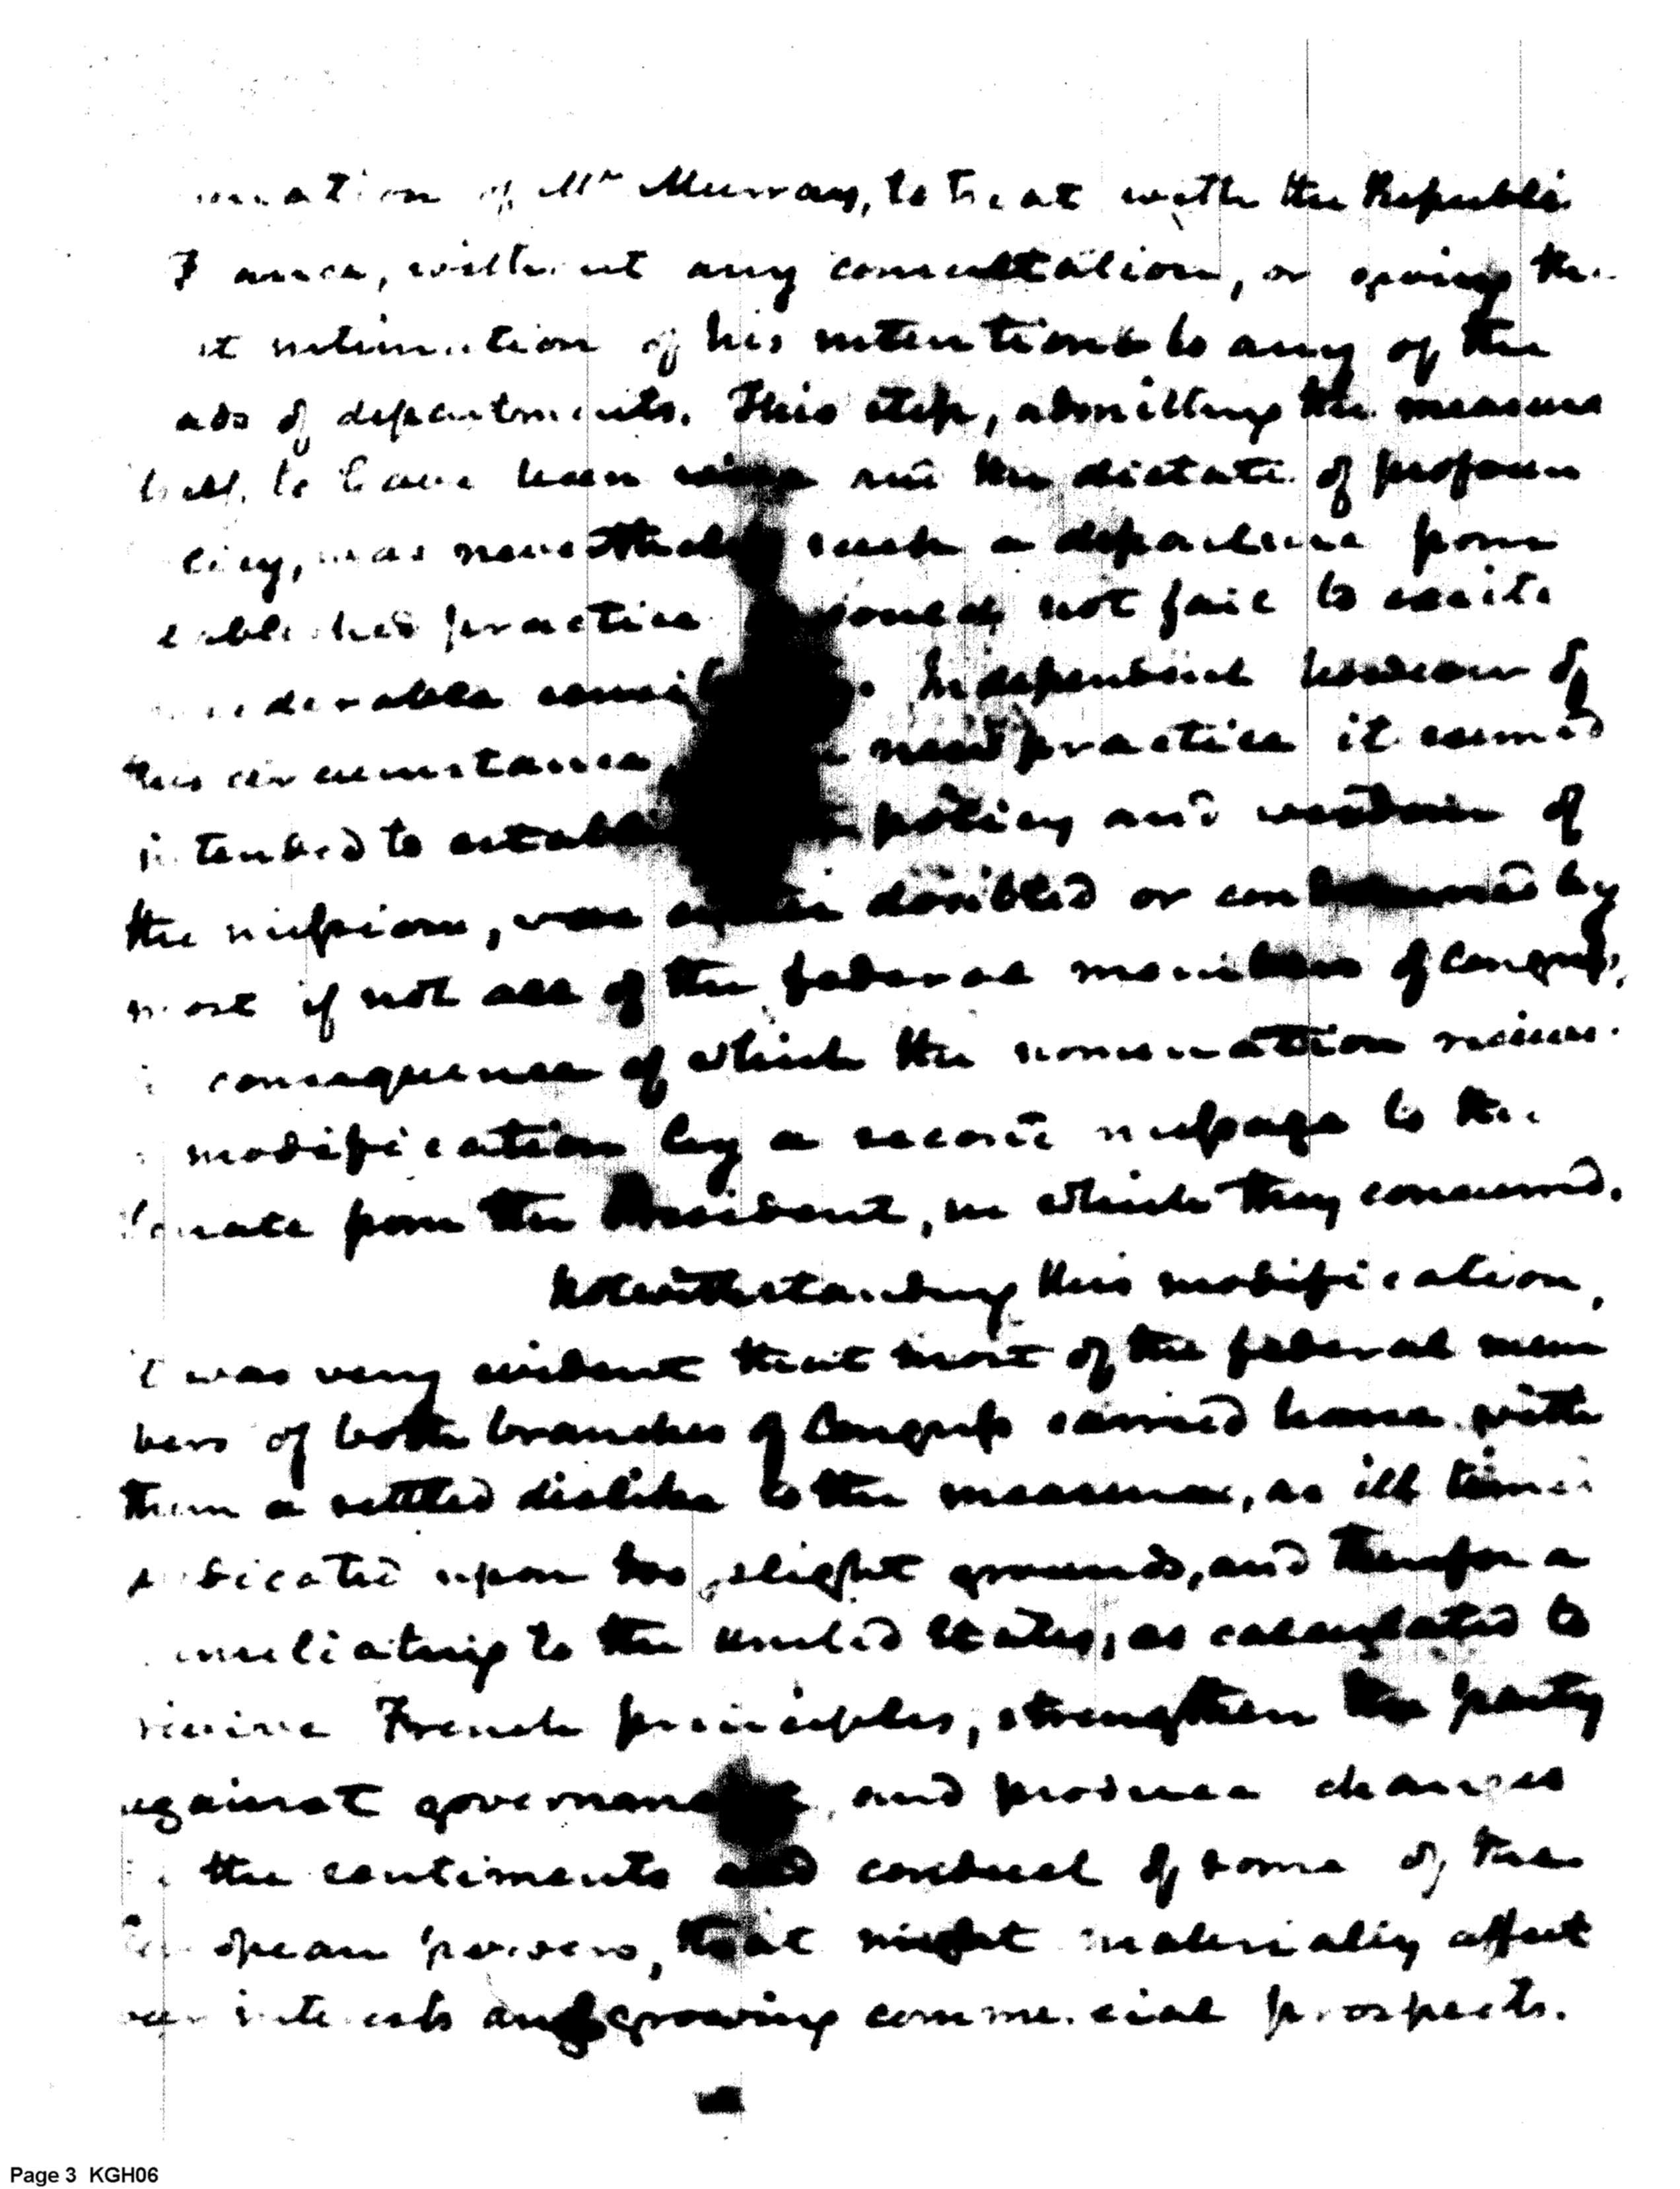 nation of Mr Murray, to treat with the Republi
France, without any consultation, or giving the
st intimation of his intentions to any of the
ads of departments. This step, admitting the measure
itself, to have been wise and the dictate of profoun
licy, was nevertheless such a departure from
established practice could not fail to excite
considerable sensib . Independent however of
this circumstance new practice it seemed
intended to establi policy and wisdom of
the mission, was either doubted or condemned by
most if not all of the federal members of Congress,
in consequence of which the nomination received
a modification by a second message to the
Senate from the President, in which they concurred.
Notwithstanding this modification,
it was very evident that most of the federal mem
bers of both branches of Congress carried home with
them a settled dislike to the measure, as ill timed
predicated upon too slight grounds, and therefore
humiliating to the United States, as calculated to
revive French principles, strengthen the party
against government, and produce changes
in the sentiments and conduct of some of the
European powers, that might materially affect
our interests and growing commercial prospects.
Page 3 KGH06